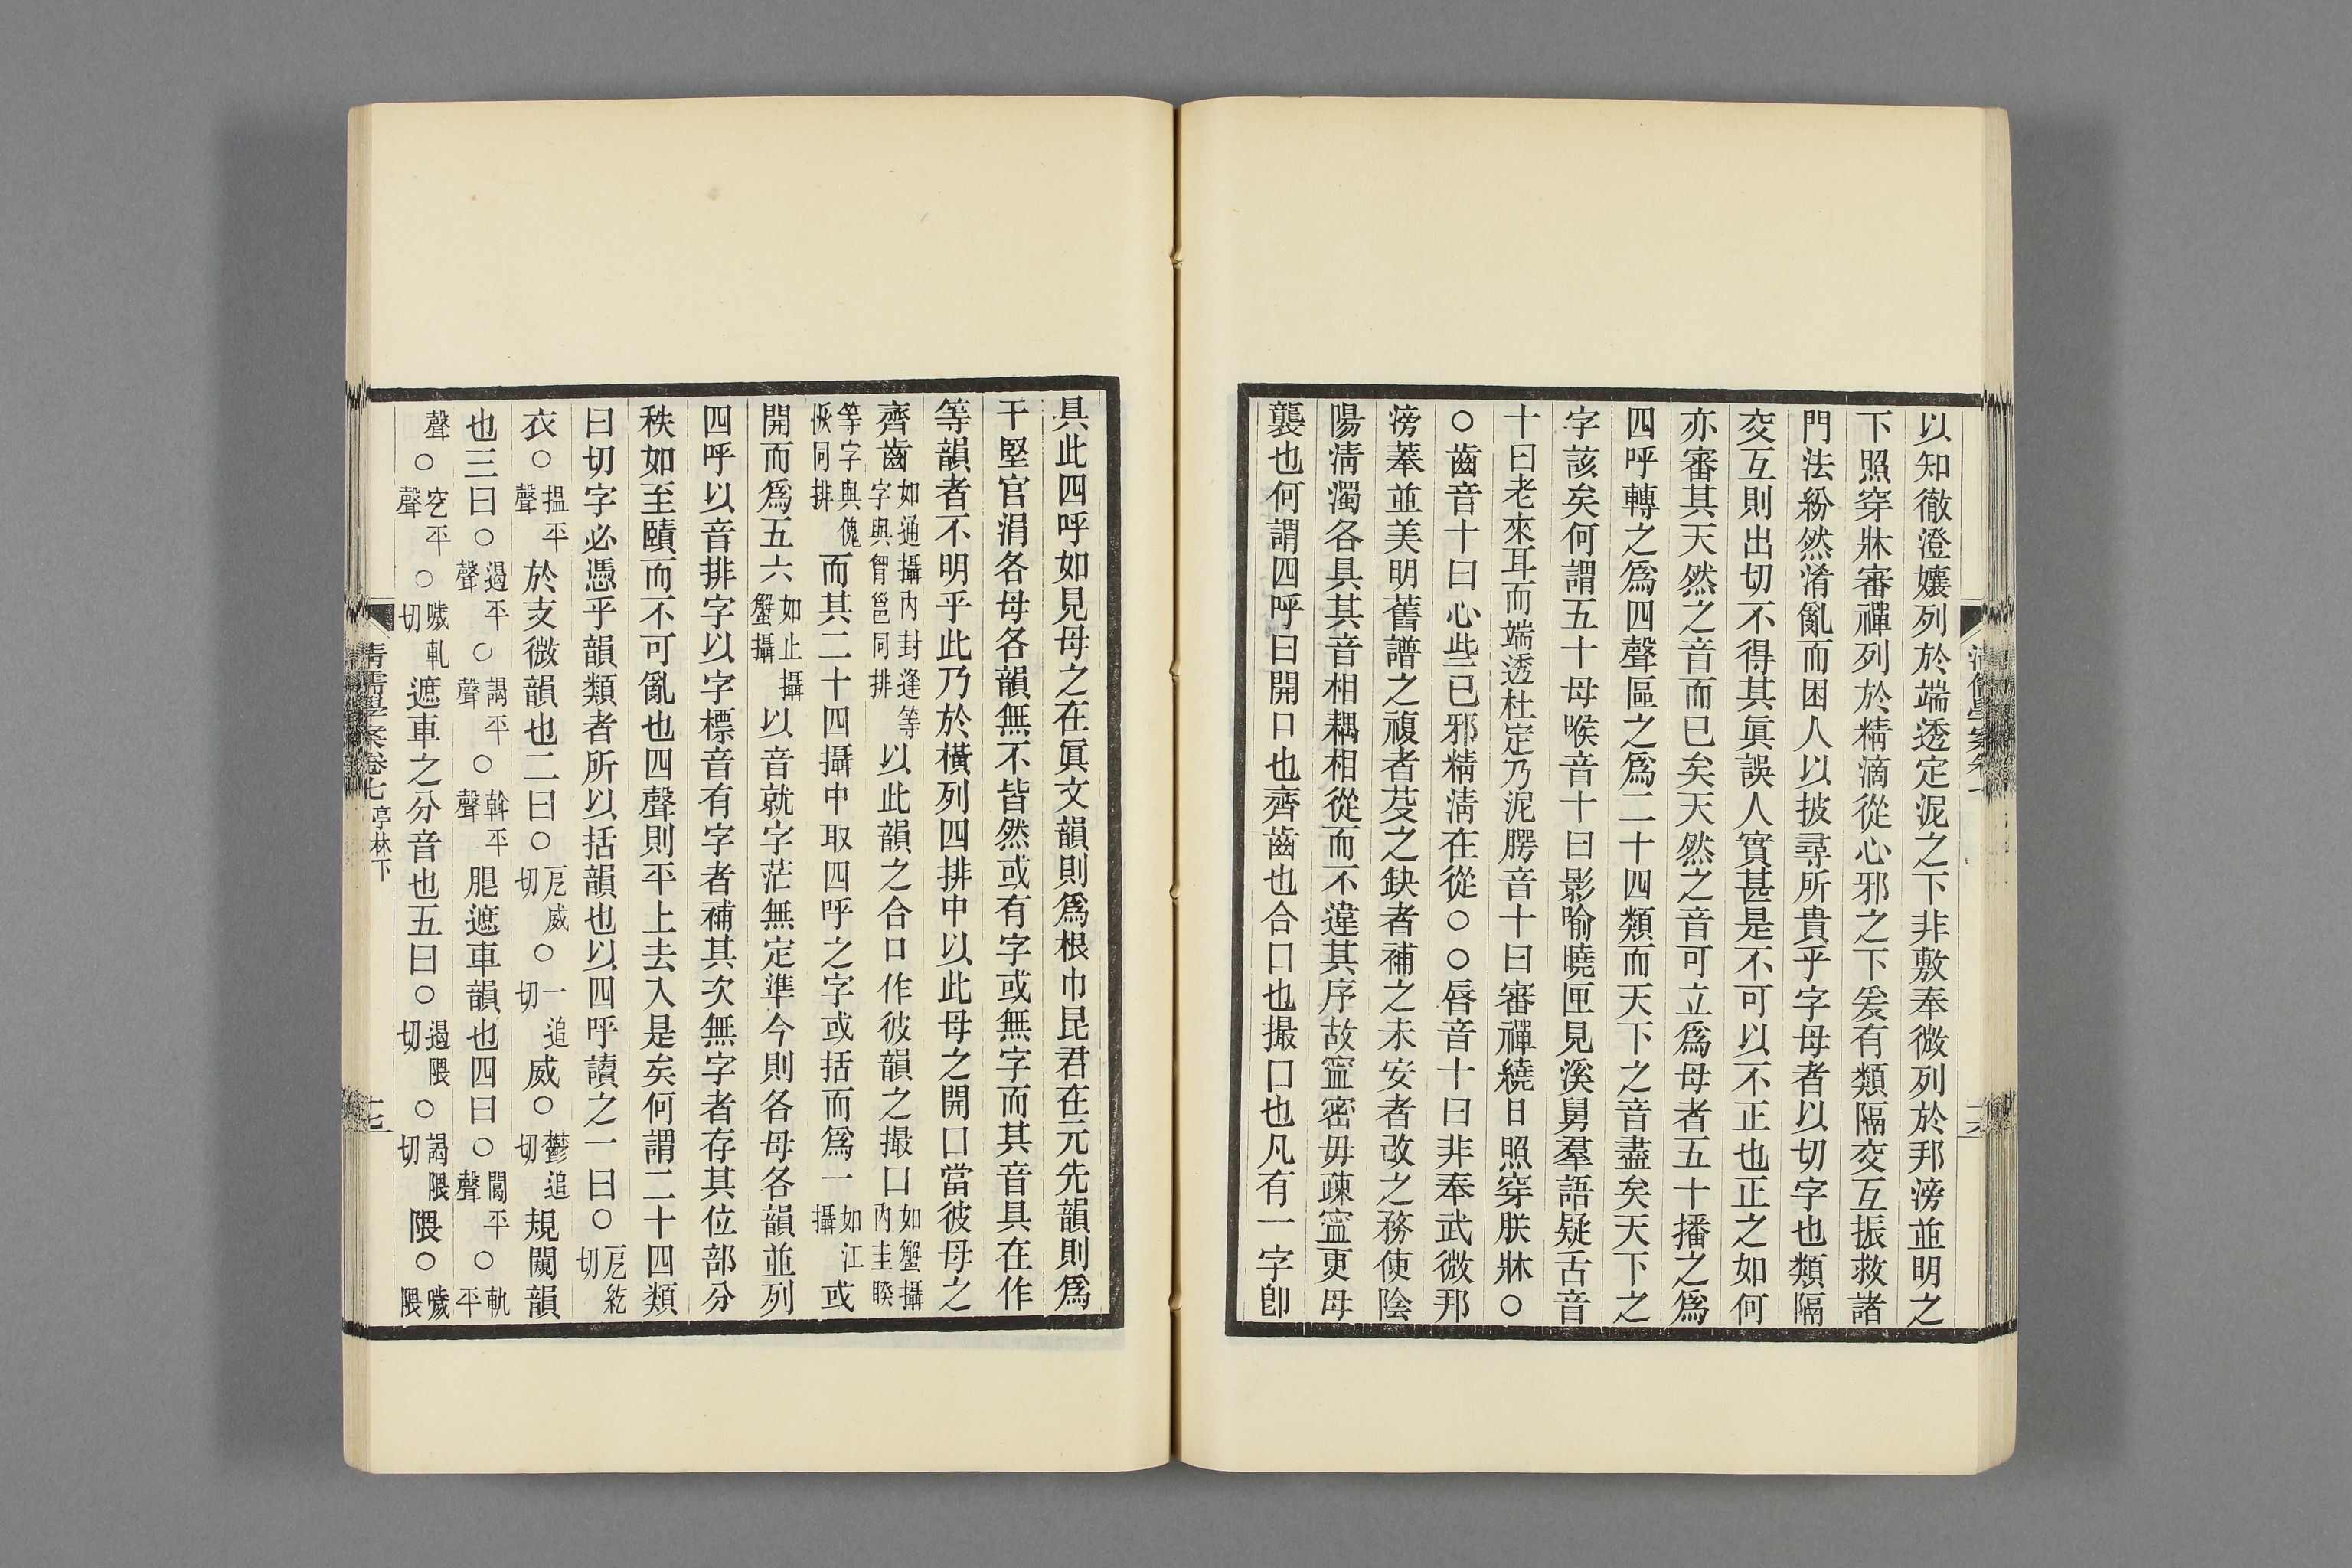 以知徹澄孃列於端透定泥之下非敷奉微列於邦滂並明之
下照穿牀審禪列於精清從心邪之下爰有類隔交互振救諸
門法紛然淆亂而困人以披尋所貴乎字母者以切字也類隔
交互則出切不得其眞誤人實甚是不可以不正也正之如何
亦審其天然之音而已矣天然之音可立爲母者五十播之爲
四呼轉之爲四聲區之爲二十四類而天下之音盡矣天下之
字該矣何謂五十母喉音十曰影喻曉匣見溪舅羣語疑舌音
十曰老來耳而端透杜定乃泥腭音十曰審禪繞日照穿朕牀○
○齒音十曰心些巳邪精淸在從○○唇音十曰非奉武微邦
滂菶並美明舊譜之複者芟之缺者補之未安者改之務使陰
陽淸濁各具其音相耦相從而不違其序故寍密毋疎寍更母
襲也何謂四呼曰開口也齊齒也合口也撮口也凡有一字卽
具此四呼如見母之在眞文韻則爲根巾昆君在元先韻則爲
干堅官涓各母各韻無不皆然或有字或無字而其音具在作
等韻者不明乎此乃於橫列四排中以此母之開口當彼母之
齊齒如通攝內封逢等字與胷邕同排以此韻之合口作彼韻之撮口如蟹攝內圭睽
等字與傀恢同排而其二十四攝中取四呼之字或括而爲一如江攝或
開而爲五六如止攝蟹攝以音就字茫無定準今則各母各韻並列
四呼以音排字以字標音有字者補其次無字者存其位部分
秩如至賾而不可亂也四聲則平上去入是矣何謂二十四類
曰切字必憑乎韻類者所以括韻也以四呼讀之一曰○戹紇切
衣○揾平聲於支微韻也二曰○戹威切○一追切威○鬱追切規闚韻
也三曰○遏平聲○謁平聲○斡平聲胆遮車韻也四曰○閣平聲○軌平
聲○穵平聲○噦軋切遮車之分音也五曰○遏隈切○謁隈切隈○噦隈
清儒學案卷七 亭林下 十七